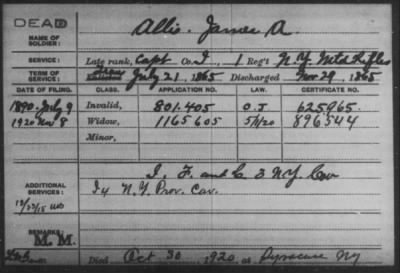 DEAD
NAME OF SOLDIER: Allis, James A.
SERVICE: Late rank, Capt Co. I, 1 Reg't N.Y. Mtd Rifles
TERM OF SERVICE: Enlisted July 21, 1865 Discharged Nov 29, 1865
DATE OF FILING. CLASS. APPLICATION NO. LAW. CERTIFICATE NO.
1890 July 9 Invalid, 801.405 O.J. 625965
1920 Nov 8 Widow, 1165605 5/1/20 896544
Minor,
ADDITIONAL SERVICES: I. F. and C. 3 N.Y. Cav
I 4 N.Y. Prov. Cav.
REMARKS:
M. M.
Died Oct 30, 1920, at Syracuse NY